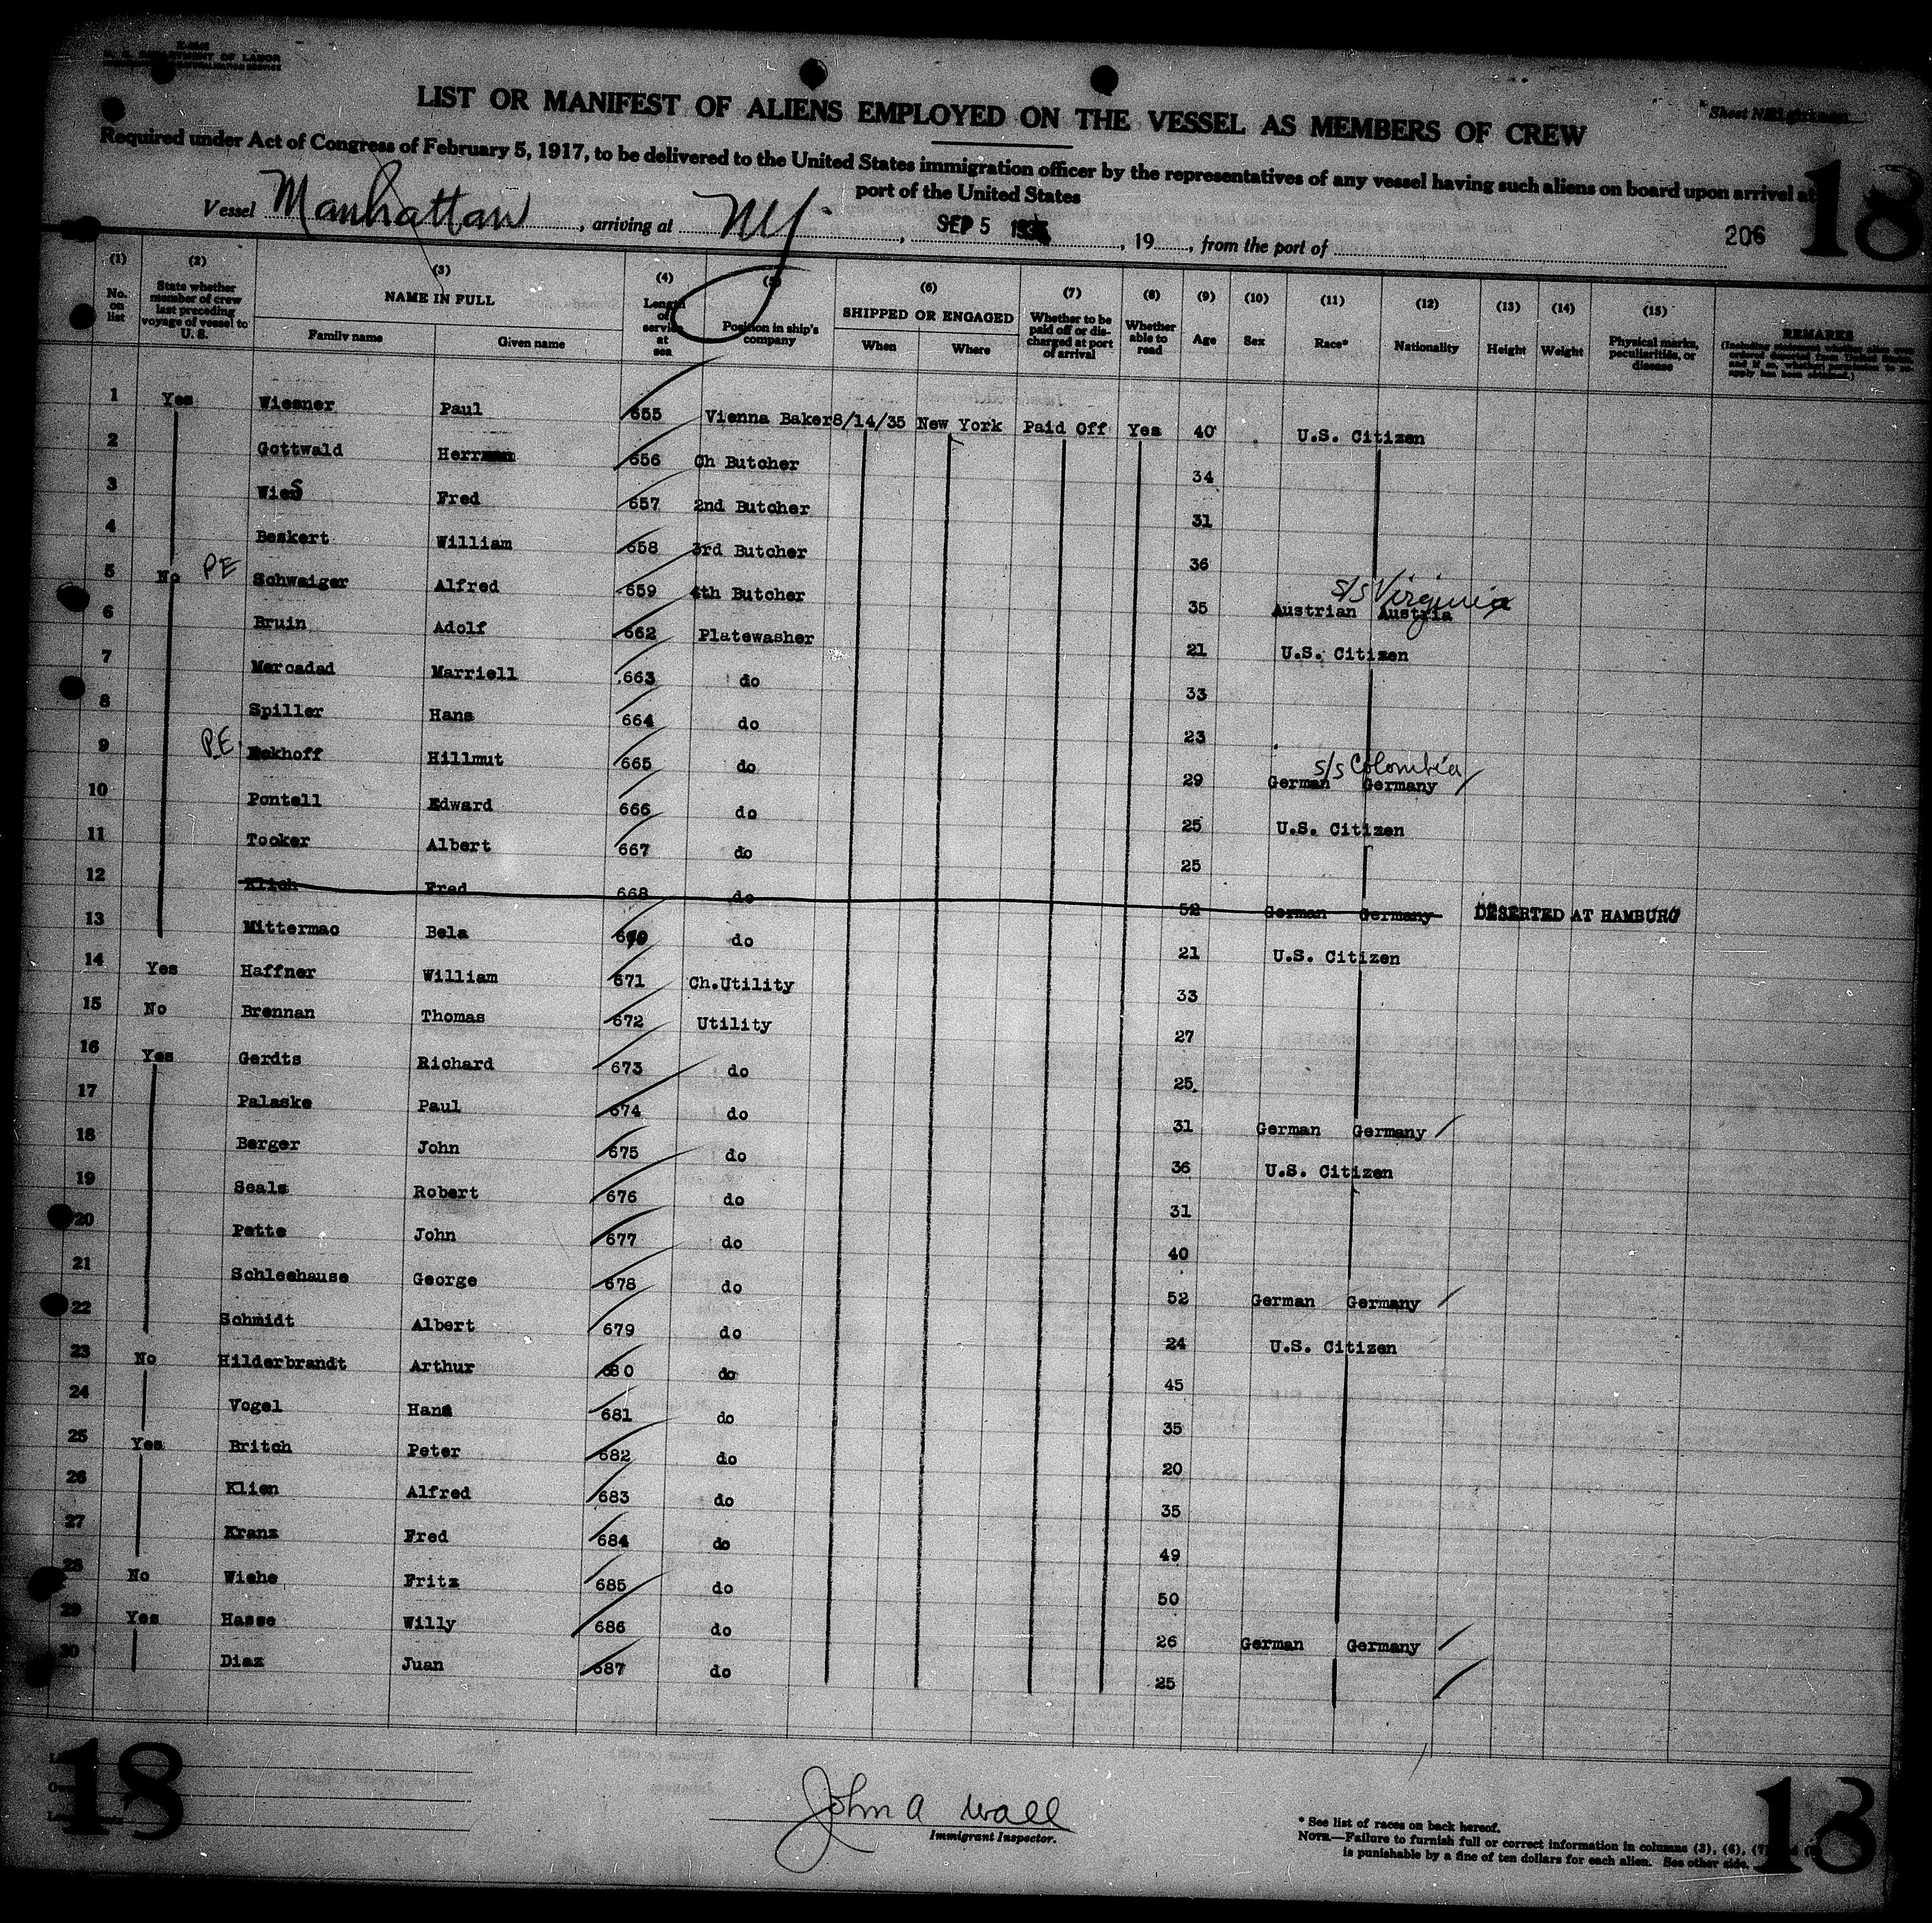 U. S. DEPARTMENT OF LABOR
LIST OR MANIFEST OF ALIENS EMPLOYED ON THE VESSEL AS MEMBERS OF CREW
Sheet No.
Required under Act of Congress of February 5, 1917, to be delivered to the United States immigration officer by the representatives of any vessel having such aliens on board upon arrival at
port of the United States
18
Vessel Manhattan, arriving at NY., SEP 5, 19, from the port of
206
(1) (2) (3) (4) (5) (6) (7) (8) (9) (10) (11) (12) (13) (14) (15)
No. on list
State whether member of crew last preceding voyage of vessel to U. S.
NAME IN FULL
Family name
Given name
Length of service at sea
Position in ship's company
SHIPPED OR ENGAGED
When
Where
Whether to be paid off or discharged at port of arrival
Whether able to read
Age
Sex
Race*
Nationality
Height
Weight
Physical marks, peculiarities, or disease
REMARKS
(Including statement whether alien ever ordered deported from United States, and if so, whether permission to reapply has been obtained.)
1 Yes Wiesner Paul 655 Vienna Baker 8/14/35 New York Paid Off Yes 40 U.S. Citizen
2 Gottwald Herr 656 Ch Butcher 34
3 Wies Fred 657 2nd Butcher 31
4 Beskert William 658 3rd Butcher 36
s/s Virginia
5 No PE Schwaiger Alfred 659 4th Butcher 35 Austrian Austria
6 Bruin Adolf 662 Platewasher 21 U.S. Citizen
7 Mercadad Marriell 663 do 33
8 Spiller Hans 664 do 23
s/s Colombia
9 P.E. Eekhoff Hillmut 665 do 29 German Germany
10 Pontell Edward 666 do 25 U.S. Citizen
11 Tooker Albert 667 do 25
12 Klich Fred 668 do 52 German Germany DESERTED AT HAMBURG
13 Mittermac Bela 670 do 21 U.S. Citizen
14 Yes Haffner William 671 Ch.Utility 33
15 No Brennan Thomas 672 Utility 27
16 Yes Gerdts Richard 673 do 25
17 Palaske Paul 674 do 31 German Germany
18 Berger John 675 do 36 U.S. Citizen
19 Seals Robert 676 do 31
20 Pette John 677 do 40
21 Schleehause George 678 do 52 German Germany
22 Schmidt Albert 679 do 24 U.S. Citizen
23 No Hilderbrandt Arthur 680 do 45
24 Vogel Hans 681 do 35
25 Yes Britch Peter 682 do 20
26 Klien Alfred 683 do 35
27 Kranz Fred 684 do 49
28 No Wiehe Fritz 685 do 50
29 Yes Hasse Willy 686 do 26 German Germany
30 Diaz Juan 687 do 25
18
John A Wall
Immigrant Inspector.
* See list of races on back hereof.
NOTE.—Failure to furnish full or correct information in columns (3), (6), (7)
is punishable by a fine of ten dollars for each alien. See other side.
18